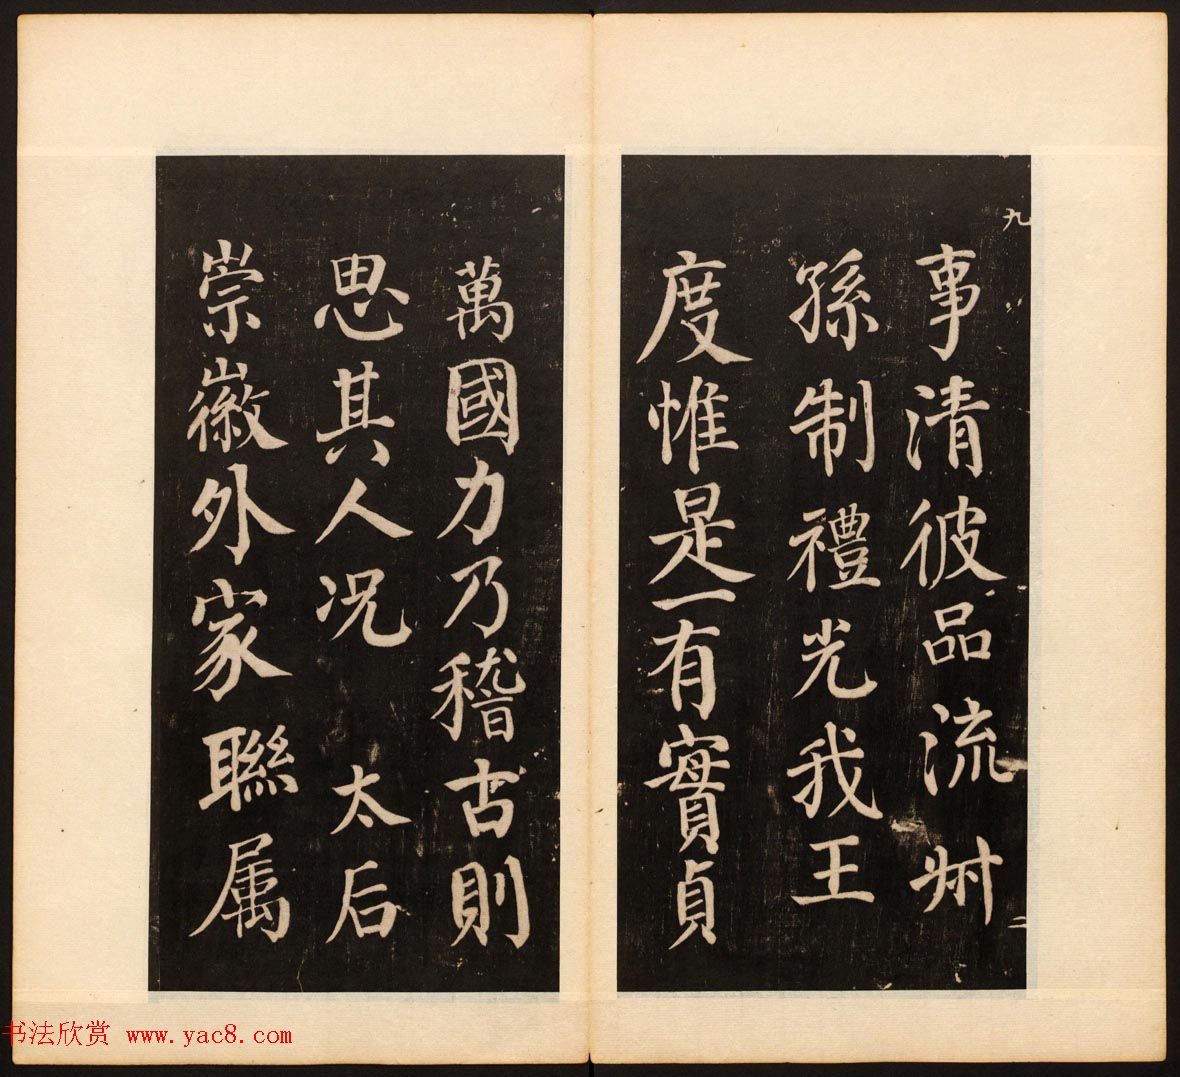 九
事清彼品流㪯
孫制禮光我王
度惟是一有實貞
二
萬國力乃稽古則
思其人况 太后
崇徽外家聯属
书法欣赏 www.yac8.com